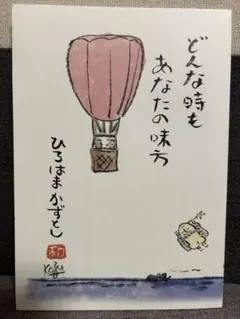 どんな時も
あなたの味方
ひろはまかずとし